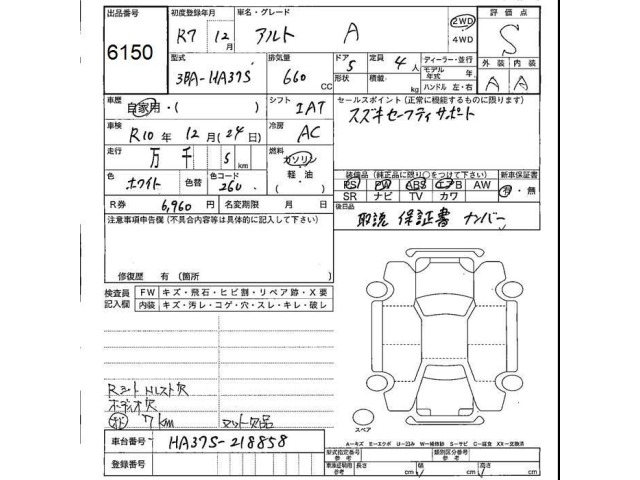 出品番号 初度登録年月 車名・グレード 評価点
6150 R7 12月 アルト A 2WD 4WD S
型式 排気量 ドア 5 定員 4人 ディーラー・並行 外装 内装
3BA-HA37S 660 CC 形状 積載 kg モデル年式 年 ハンドル 左・右 A A
車歴 自家用・( ) シフト IAT セールスポイント(正常に機能するものに限ります)
車検 R10年 12月(24日) 冷房 AC スズキセーフティサポート
走行 万 千 5 km 燃料 ガソリン 軽油 ( )
色 ホワイト 色替 色コード 260 装備品(純正品に限り○をつけて下さい) 新車保証書
PS PW ABS エアB AW 有・無
SR ナビ TV カワ
R券 6,960円 名変期限 月 日 後日品
注意事項申告欄(不具合内容等は具体的に記入して下さい) 取説 保証書 ナンバー
修復歴 有(箇所 )
検査員記入欄 FW キズ・飛石・ヒビ割・リペア跡・X要
内装 キズ・汚レ・コゲ・穴・スレ・キレ・破レ
Rシート HLスト欠
ボディオ欠
7km マット欠品
スペア
車台番号 HA37S-218858
A-キズ E-エクボ U-凹み W-補修跡 S-サビ C-腐食 XX-交換済
登録番号 型式指定番号 参考 類別区分番号 参考
車庫証明用 参考 長さ cm 幅 cm 高さ cm